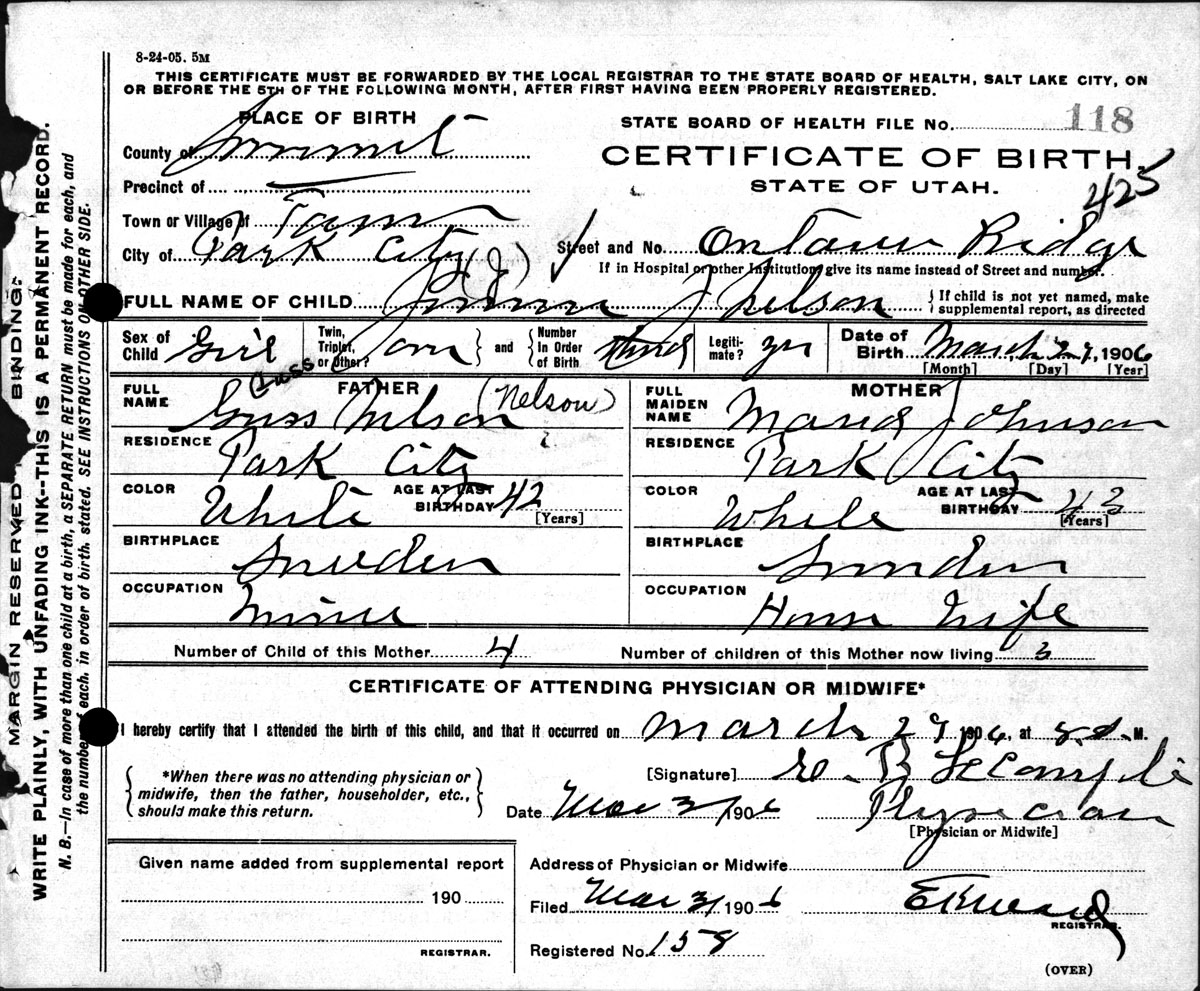 8-24-05. 5M
THIS CERTIFICATE MUST BE FORWARDED BY THE LOCAL REGISTRAR TO THE STATE BOARD OF HEALTH, SALT LAKE CITY, ON
OR BEFORE THE 5TH OF THE FOLLOWING MONTH, AFTER FIRST HAVING BEEN PROPERLY REGISTERED.
PLACE OF BIRTH
STATE BOARD OF HEALTH FILE No. 118
County of Summit
CERTIFICATE OF BIRTH.
Precinct of
STATE OF UTAH.
425
Town or Village of
City of Park City (J) ✓ Street and No. Ontario Ridge
If in Hospital or other Institution, give its name instead of Street and number.
FULL NAME OF CHILD J Nelson { If child is not yet named, make
supplemental report, as directed
Sex of Child Girl Twin, Triplet, or Other? } and { Number In Order of Birth Legiti- mate? Date of Birth March 27, 1906
[Month] [Day] [Year]
FATHER
MOTHER
FULL NAME Guss Nelson (Nelson)
FULL MAIDEN NAME Johnson
RESIDENCE Park City
RESIDENCE Park City
COLOR White AGE AT LAST BIRTHDAY 42 [Years]
COLOR White AGE AT LAST BIRTHDAY 43 [Years]
BIRTHPLACE Sweden
BIRTHPLACE Sweden
OCCUPATION Miner
OCCUPATION House Wife
Number of Child of this Mother 4 Number of children of this Mother now living 3
CERTIFICATE OF ATTENDING PHYSICIAN OR MIDWIFE*
I hereby certify that I attended the birth of this child, and that it occurred on March 27 1906, at M.
*When there was no attending physician or
midwife, then the father, householder, etc.,
should make this return.
[Signature] B LeCompte
Date Mar 31 1906 Physician
[Physician or Midwife]
Given name added from supplemental report
190
REGISTRAR.
Address of Physician or Midwife
Filed Mar 31 1906
REGISTRAR.
Registered No. 158
(OVER)
MARGIN RESERVED BINDING.
WRITE PLAINLY, WITH UNFADING INK--THIS IS A PERMANENT RECORD.
N. B.—In case of more than one child at a birth, a SEPARATE RETURN must be made for each, and
the number of each, in order of birth, stated. SEE INSTRUCTIONS ON OTHER SIDE.